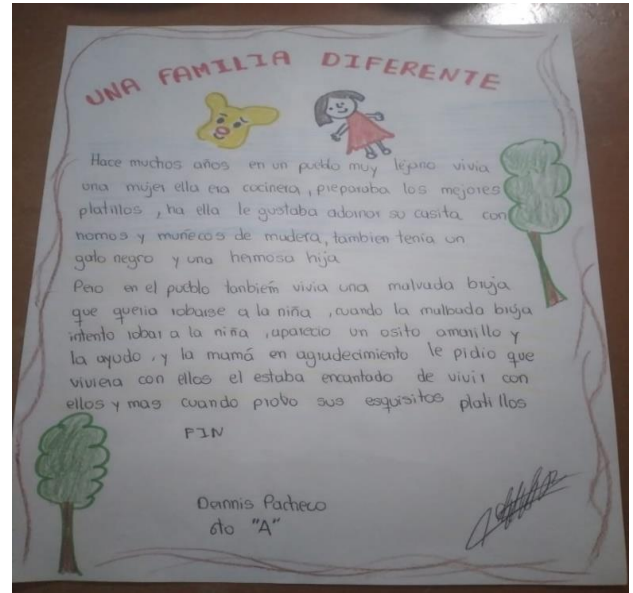 UNA FAMILIA DIFERENTE
Hace muchos años en un pueblo muy lejano vivia
una mujer ella era cocinera, preparaba los mejores
platillos, ha ella le gustaba adornar su casita con
nomos y muñecos de madera, tambien tenía un
gato negro y una hermosa hija
Pero en el pueblo tanbieín vivia una malvada bruja
que queria robarse a la niña, cuando la malbada bruja
intento robar a la niña, aparecio un osito amarillo y
la ayudo, y la mamá en agradecimiento le pidio que
viviera con ellos el estaba encantado de vivir con
ellos y mas cuando probo sus esquisitos platillos
FIN
Dannis Pacheco
6to "A"